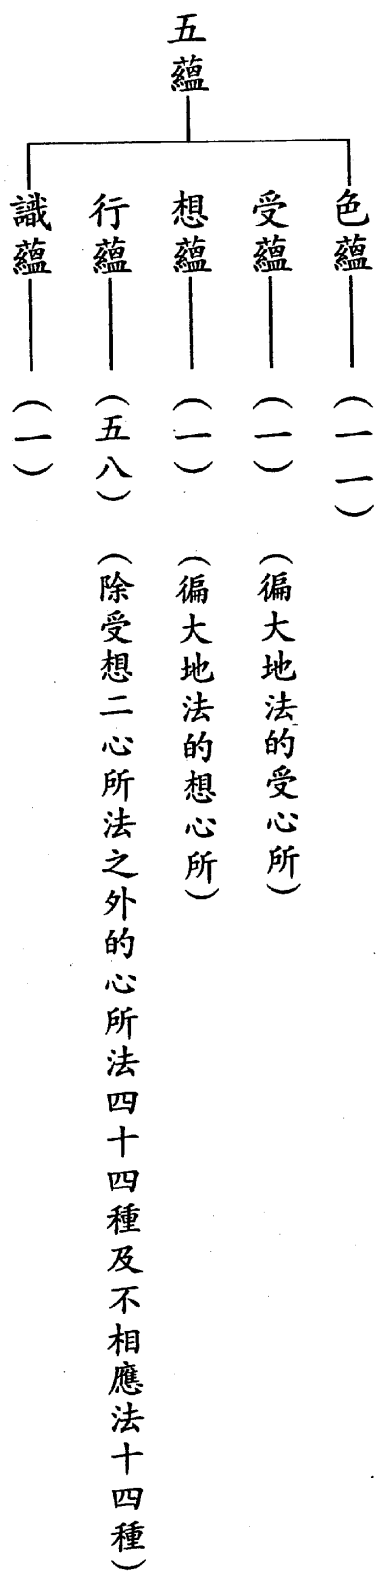 五蘊
色蘊（一一）
受蘊（一）（徧大地法的受心所）
想蘊（一）（徧大地法的想心所）
行蘊（五八）（除受想二心所法之外的心所法四十四種及不相應法十四種）
識蘊（一）